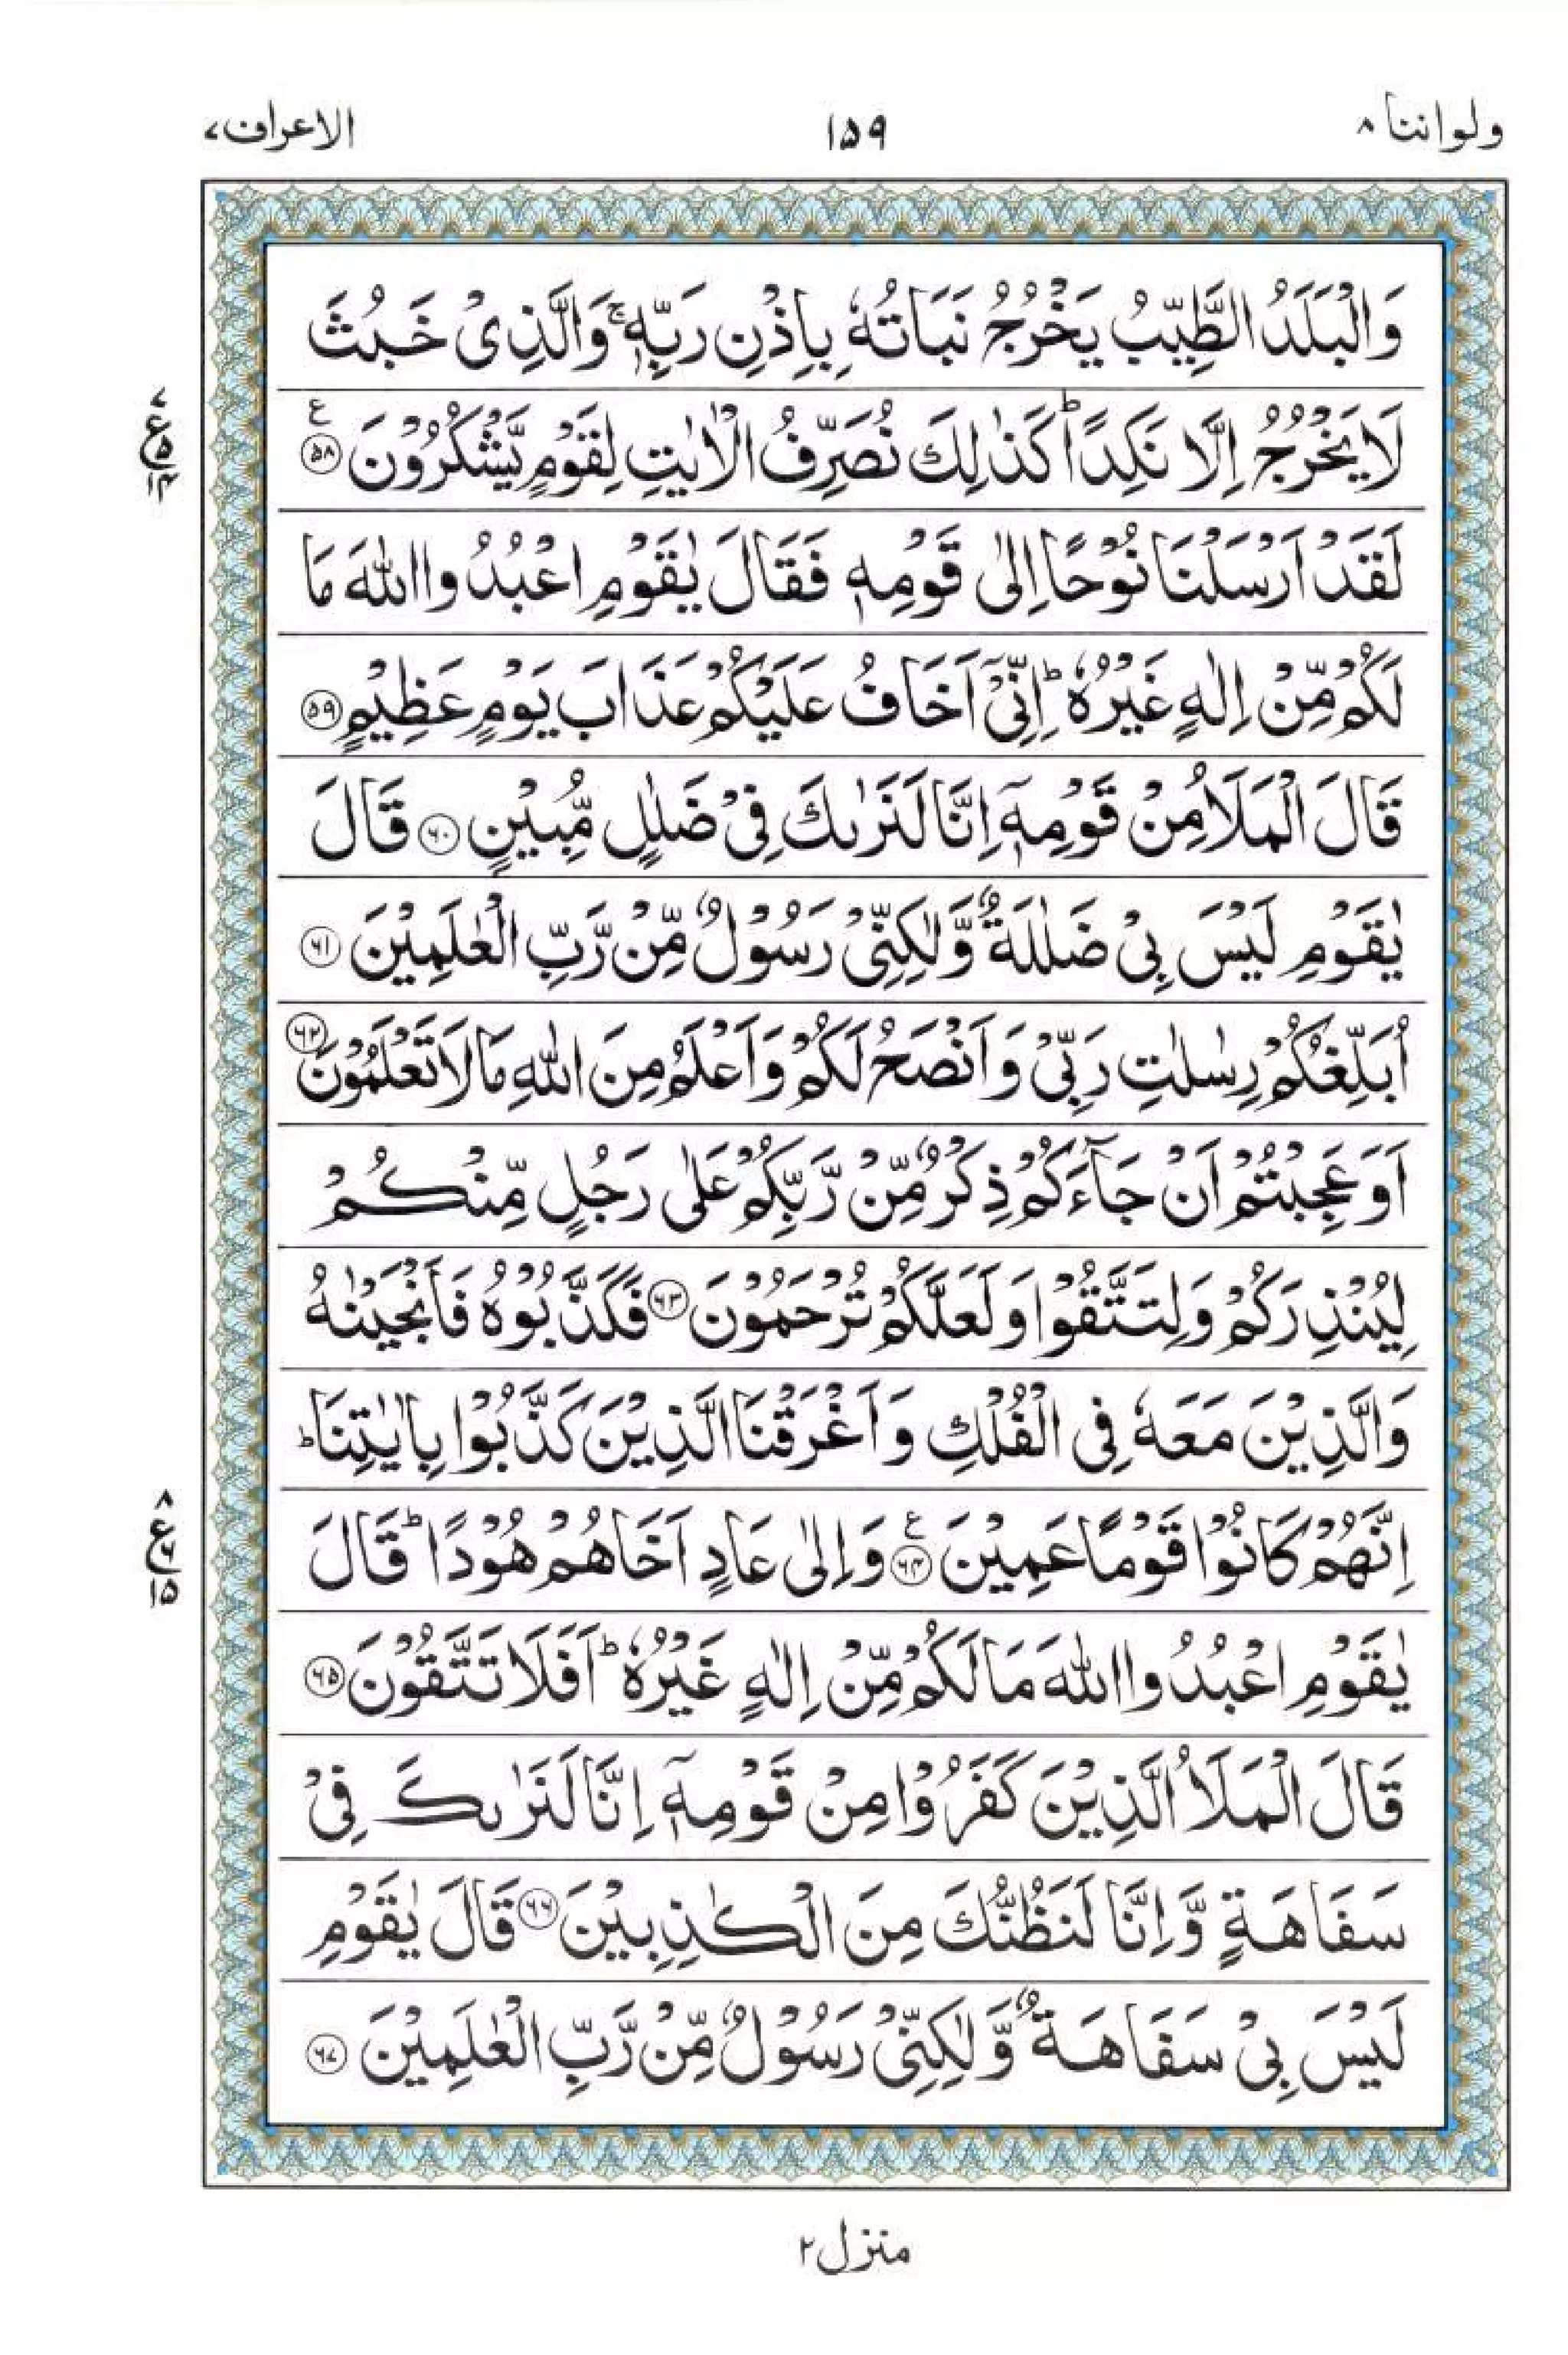 ولواننا ۸
۱۵۹
الاعراف ۷
وَالْبَلَدُ الطَّيِّبُ يَخْرُجُ نَبَاتُهٗ بِاِذْنِ رَبِّهٖ ۚ وَالَّذِىْ خَبُثَ
لَا يَخْرُجُ اِلَّا نَكِدًا ؕ كَذٰلِكَ نُصَرِّفُ الْاٰيٰتِ لِقَوْمٍ يَّشْكُرُوْنَ ﴿۵۸﴾ ع
۷
ع ۵
۱۴
لَقَدْ اَرْسَلْنَا نُوْحًا اِلٰى قَوْمِهٖ فَقَالَ يٰقَوْمِ اعْبُدُوا اللّٰهَ مَا
لَكُمْ مِّنْ اِلٰهٍ غَيْرُهٗ ؕ اِنِّىْۤ اَخَافُ عَلَيْكُمْ عَذَابَ يَوْمٍ عَظِيْمٍ ﴿۵۹﴾
قَالَ الْمَلَاُ مِنْ قَوْمِهٖۤ اِنَّا لَنَرٰىكَ فِىْ ضَلٰلٍ مُّبِيْنٍ ﴿۶۰﴾ قَالَ
يٰقَوْمِ لَيْسَ بِىْ ضَلٰلَةٌ وَّلٰكِنِّىْ رَسُوْلٌ مِّنْ رَّبِّ الْعٰلَمِيْنَ ﴿۶۱﴾
اُبَلِّغُكُمْ رِسٰلٰتِ رَبِّىْ وَاَنْصَحُ لَكُمْ وَاَعْلَمُ مِنَ اللّٰهِ مَا لَا تَعْلَمُوْنَ ﴿۶۲﴾
اَوَعَجِبْتُمْ اَنْ جَآءَكُمْ ذِكْرٌ مِّنْ رَّبِّكُمْ عَلٰى رَجُلٍ مِّنْكُمْ
لِيُنْذِرَكُمْ وَلِتَتَّقُوْا وَلَعَلَّكُمْ تُرْحَمُوْنَ ﴿۶۳﴾ فَكَذَّبُوْهُ فَاَنْجَيْنٰهُ
وَالَّذِيْنَ مَعَهٗ فِى الْفُلْكِ وَاَغْرَقْنَا الَّذِيْنَ كَذَّبُوْا بِاٰيٰتِنَا ؕ
اِنَّهُمْ كَانُوْا قَوْمًا عَمِيْنَ ﴿۶۴﴾ ع وَاِلٰى عَادٍ اَخَاهُمْ هُوْدًا ؕ قَالَ
۸
ع ۶
۱۵
يٰقَوْمِ اعْبُدُوا اللّٰهَ مَا لَكُمْ مِّنْ اِلٰهٍ غَيْرُهٗ ؕ اَفَلَا تَتَّقُوْنَ ﴿۶۵﴾
قَالَ الْمَلَاُ الَّذِيْنَ كَفَرُوْا مِنْ قَوْمِهٖۤ اِنَّا لَنَرٰىكَ فِىْ
سَفَاهَةٍ وَّاِنَّا لَنَظُنُّكَ مِنَ الْكٰذِبِيْنَ ﴿۶۶﴾ قَالَ يٰقَوْمِ
لَيْسَ بِىْ سَفَاهَةٌ وَّلٰكِنِّىْ رَسُوْلٌ مِّنْ رَّبِّ الْعٰلَمِيْنَ ﴿۶۷﴾
منزل ۲